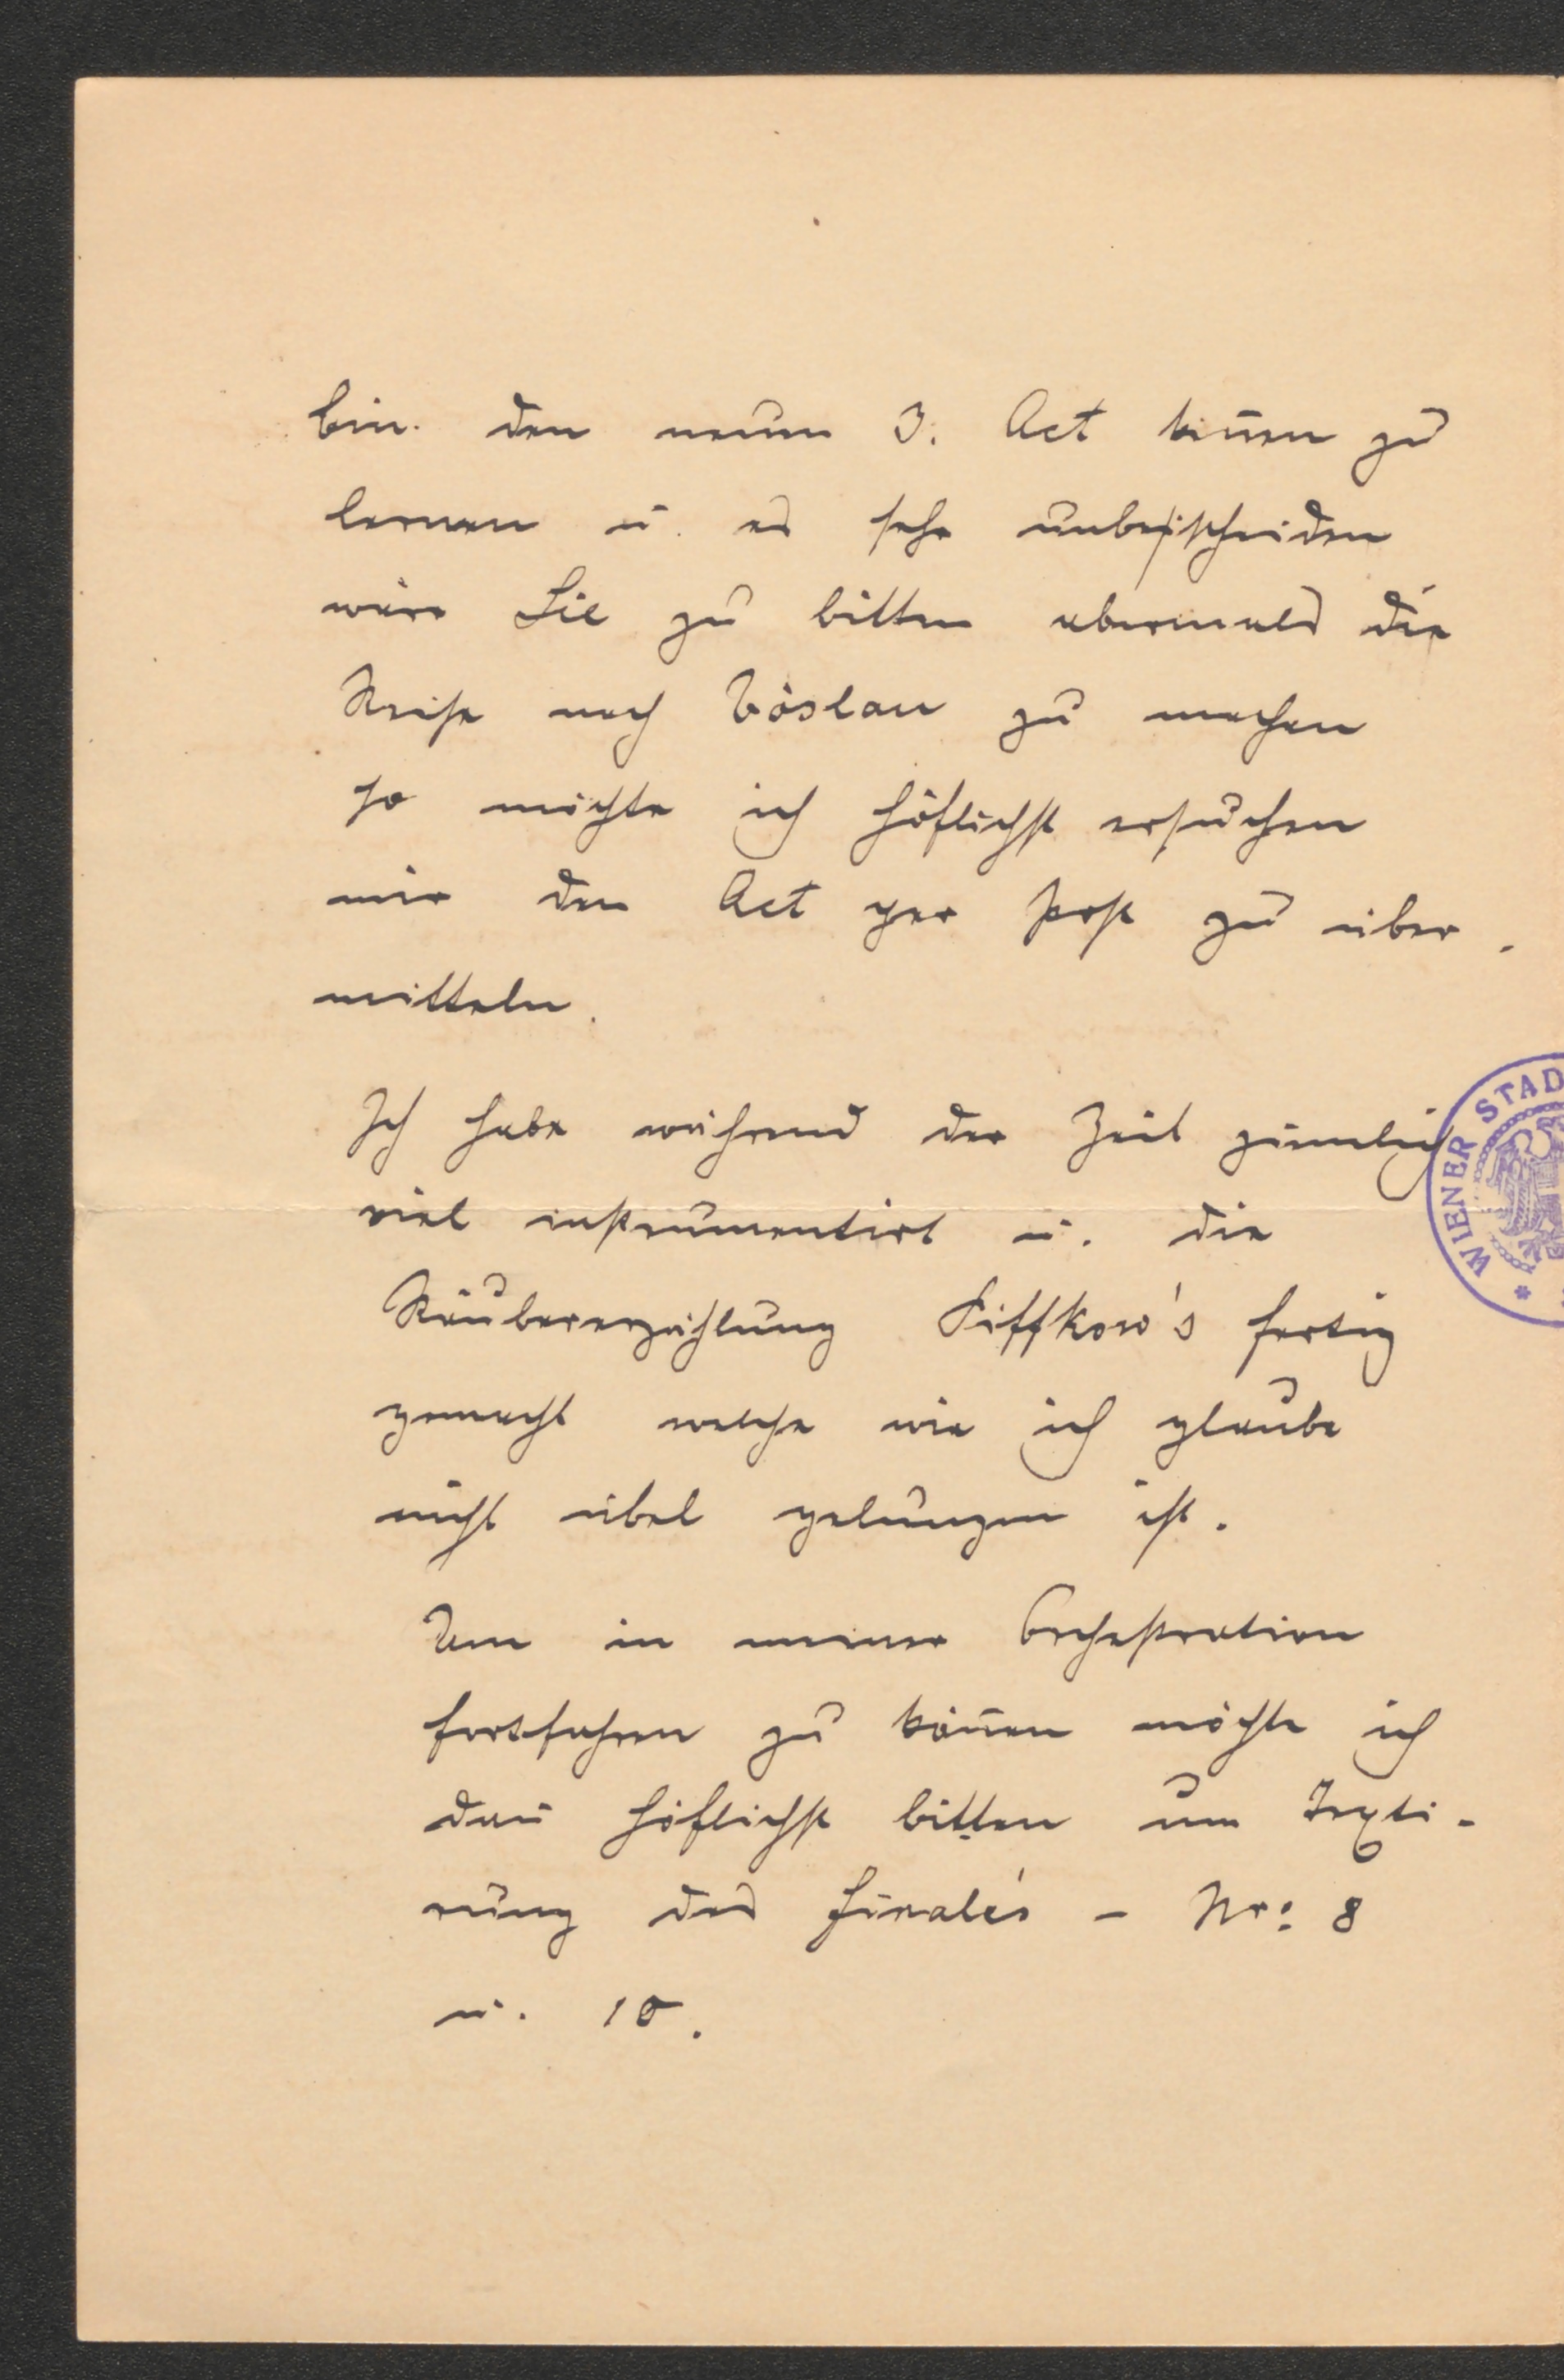 bin. den neuen 3. Act kennen zu
lernen u. es sehr unbescheiden
wäre Sie zu bitten abermals die
Reise nach Vöslau zu machen
so möchte ich höflichst ersuchen
mir den Act per Post zu über-
mitteln.
Ich habe während der Zeit ziemlich
viel instrumentirt u. die
Räubererzählung Siffkow's fertig
gemacht welche wie ich glaube
nicht übel gelungen ist.
Um in meiner Orchestration
fortfahren zu können möchte ich
dan̄ höflichst bitten um Texti-
rung des Finale's – Nro: 8
u. 10.
WIENER STAD